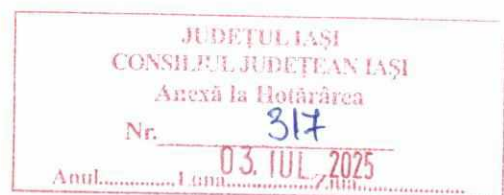 JUDEȚUL IAȘI
CONSILIUL JUDEȚEAN IAȘI
Anexă la Hotărârea
Nr. 317
03. IUL. 2025
Anul..............Luna..................Ziua...................